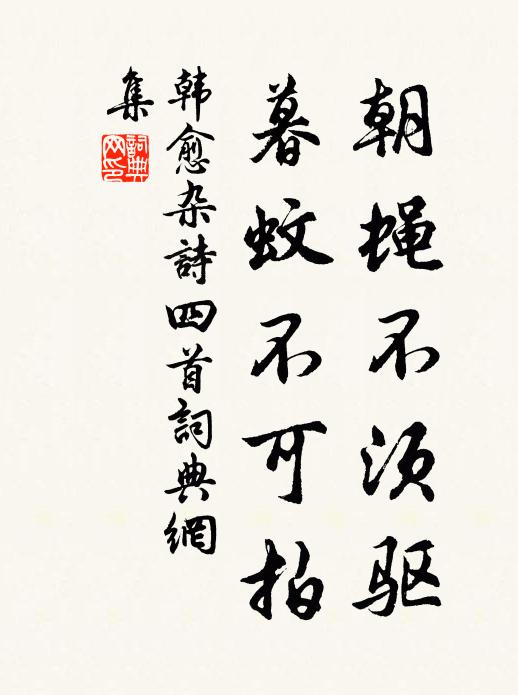 朝蝇不须驱
暮蚊不可拍
韩愈杂詩四首詞典網
集
詞典网印